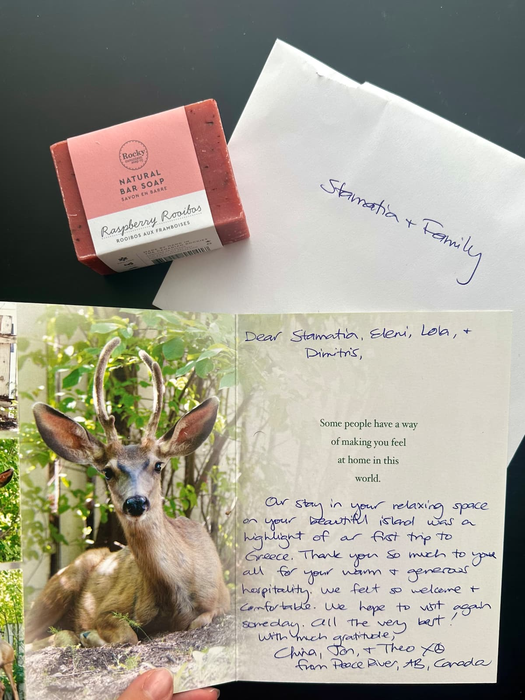 Rocky
NATURAL
BAR SOAP
SAVON EN BARRE
Raspberry Rooibos
ROOIBOS AUX FRAMBOISES
Stamatia + Family
Dear Stamatia, Eleni, Lola, +
Dimitris,
Some people have a way
of making you feel
at home in this
world.
Our stay in your relaxing space
on your beautiful island was a
highlight of our first trip to
Greece. Thank you so much to you
all for your warm & generous
hospitality. We felt so welcome +
comfortable. We hope to visit again
someday. All the very best!
With much gratitude,
Jon, & Theo XO
from Peace River, AB, Canada